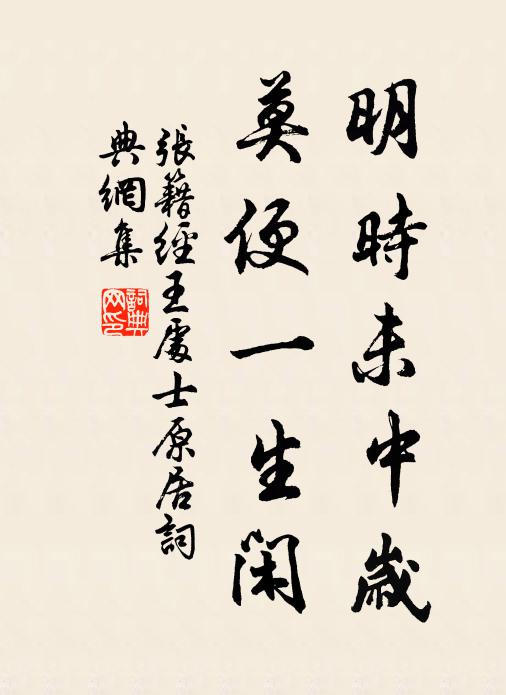 明時未中歲
莫便一生閑
張籍經王處士原居詞
典網集
詞典
网印